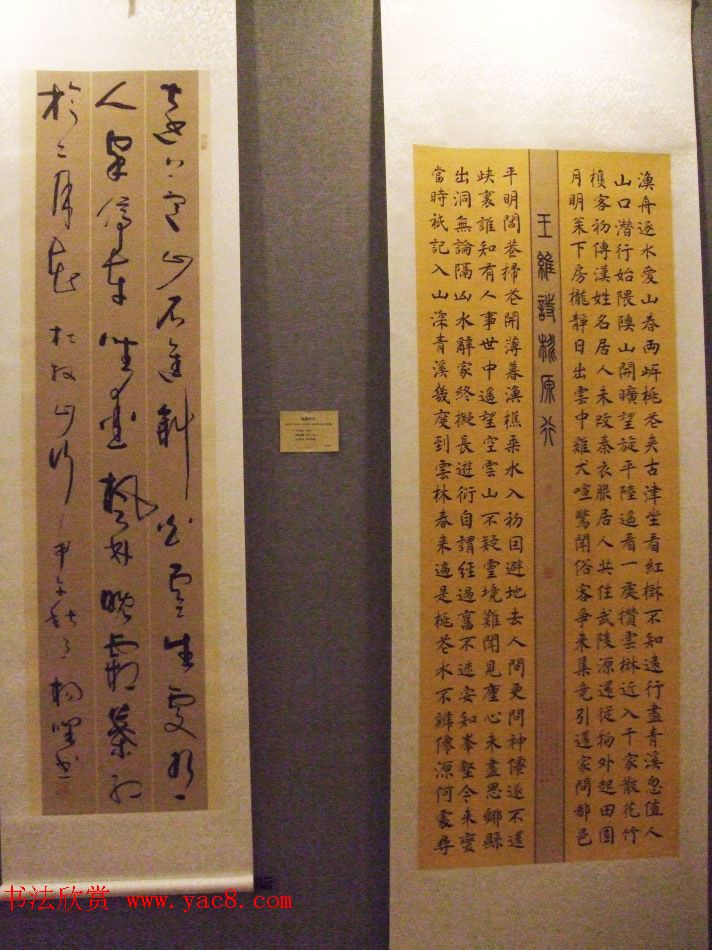 漁舟逐水愛山春兩岸桃花夾古津坐看紅樹不知遠行盡青溪忽值人
山口潛行始隈隩山開曠望旋平陸遙看一處攢雲樹近入千家散花竹
樵客初傳漢姓名居人未改秦衣服居人共住武陵源還從物外起田園
月明松下房櫳靜日出雲中雞犬喧驚聞俗客爭來集竟引還家問都邑
王維詩桃原行
平明閭巷掃花開薄暮漁樵乘水入初因避地去人間更問神僊遂不還
峽裏誰知有人事世中遙望空雲山不疑靈境難聞見塵心未盡思鄉縣
出洞無論隔山水辭家終擬長遊衍自謂經過舊不迷安知峯壑今來變
當時衹記入山深青溪幾度到雲林春來遍是桃花水不辨僊源何處尋
遠上寒山石徑斜白雲生處有
人家停車坐愛楓林晚霜葉紅
於二月花 杜牧山行
书法欣赏 www.yac8.com